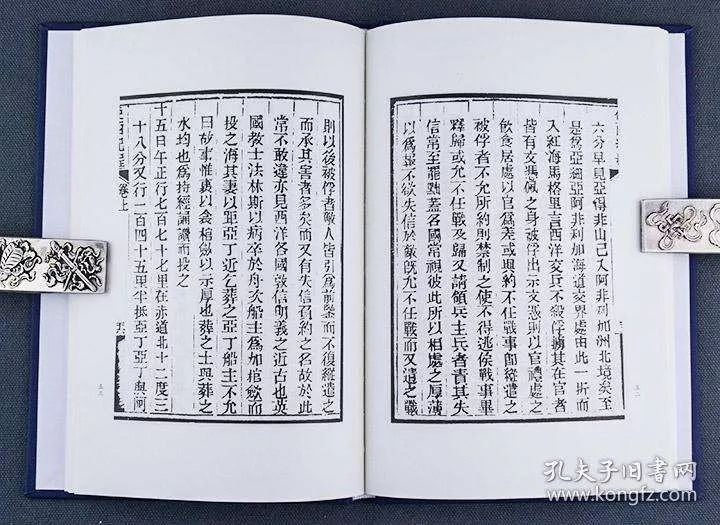 六分早見亞得非山已入阿非利加洲北境矣至
是爲亞細亞阿非利加海道交界處由此一折而
入紅海馬格里言西洋交兵不殺俘擄其在官者
皆有文憑佩之身被俘出示文憑則以官禮處之
飲食居處以官爲差或與約不任戰事即縱遣之
被俘者不允所約則禁制之使不得逃俟戰事畢
釋歸或允不任戰及歸又請領兵主兵者責其失
信常至罷黜蓋各國常視彼此所以相處之厚薄
以爲報不欲失信於敵旣允不任戰而又遣之戰
五二
則以後被俘者敵人皆引爲前鑒而不復縱遣之
而承其害者多矣而又有失信召約之名故於此
常不敢違亦見西洋各國敦信明義之近古也英
國敎士法林斯以病卒於舟次船主爲加棺斂而
投之海其妻以距亞丁近乞葬之亞丁船主不允
曰故事惟裹以衾棺斂以示厚也葬之土與葬之
水均也爲持經誦讀而投之
十五日午正行七百七十七里在赤道北十二度三
十八分又行一百四十五里半抵亞丁亞丁與阿
卷上
五三
孔夫子旧书网
www.kongfz.com